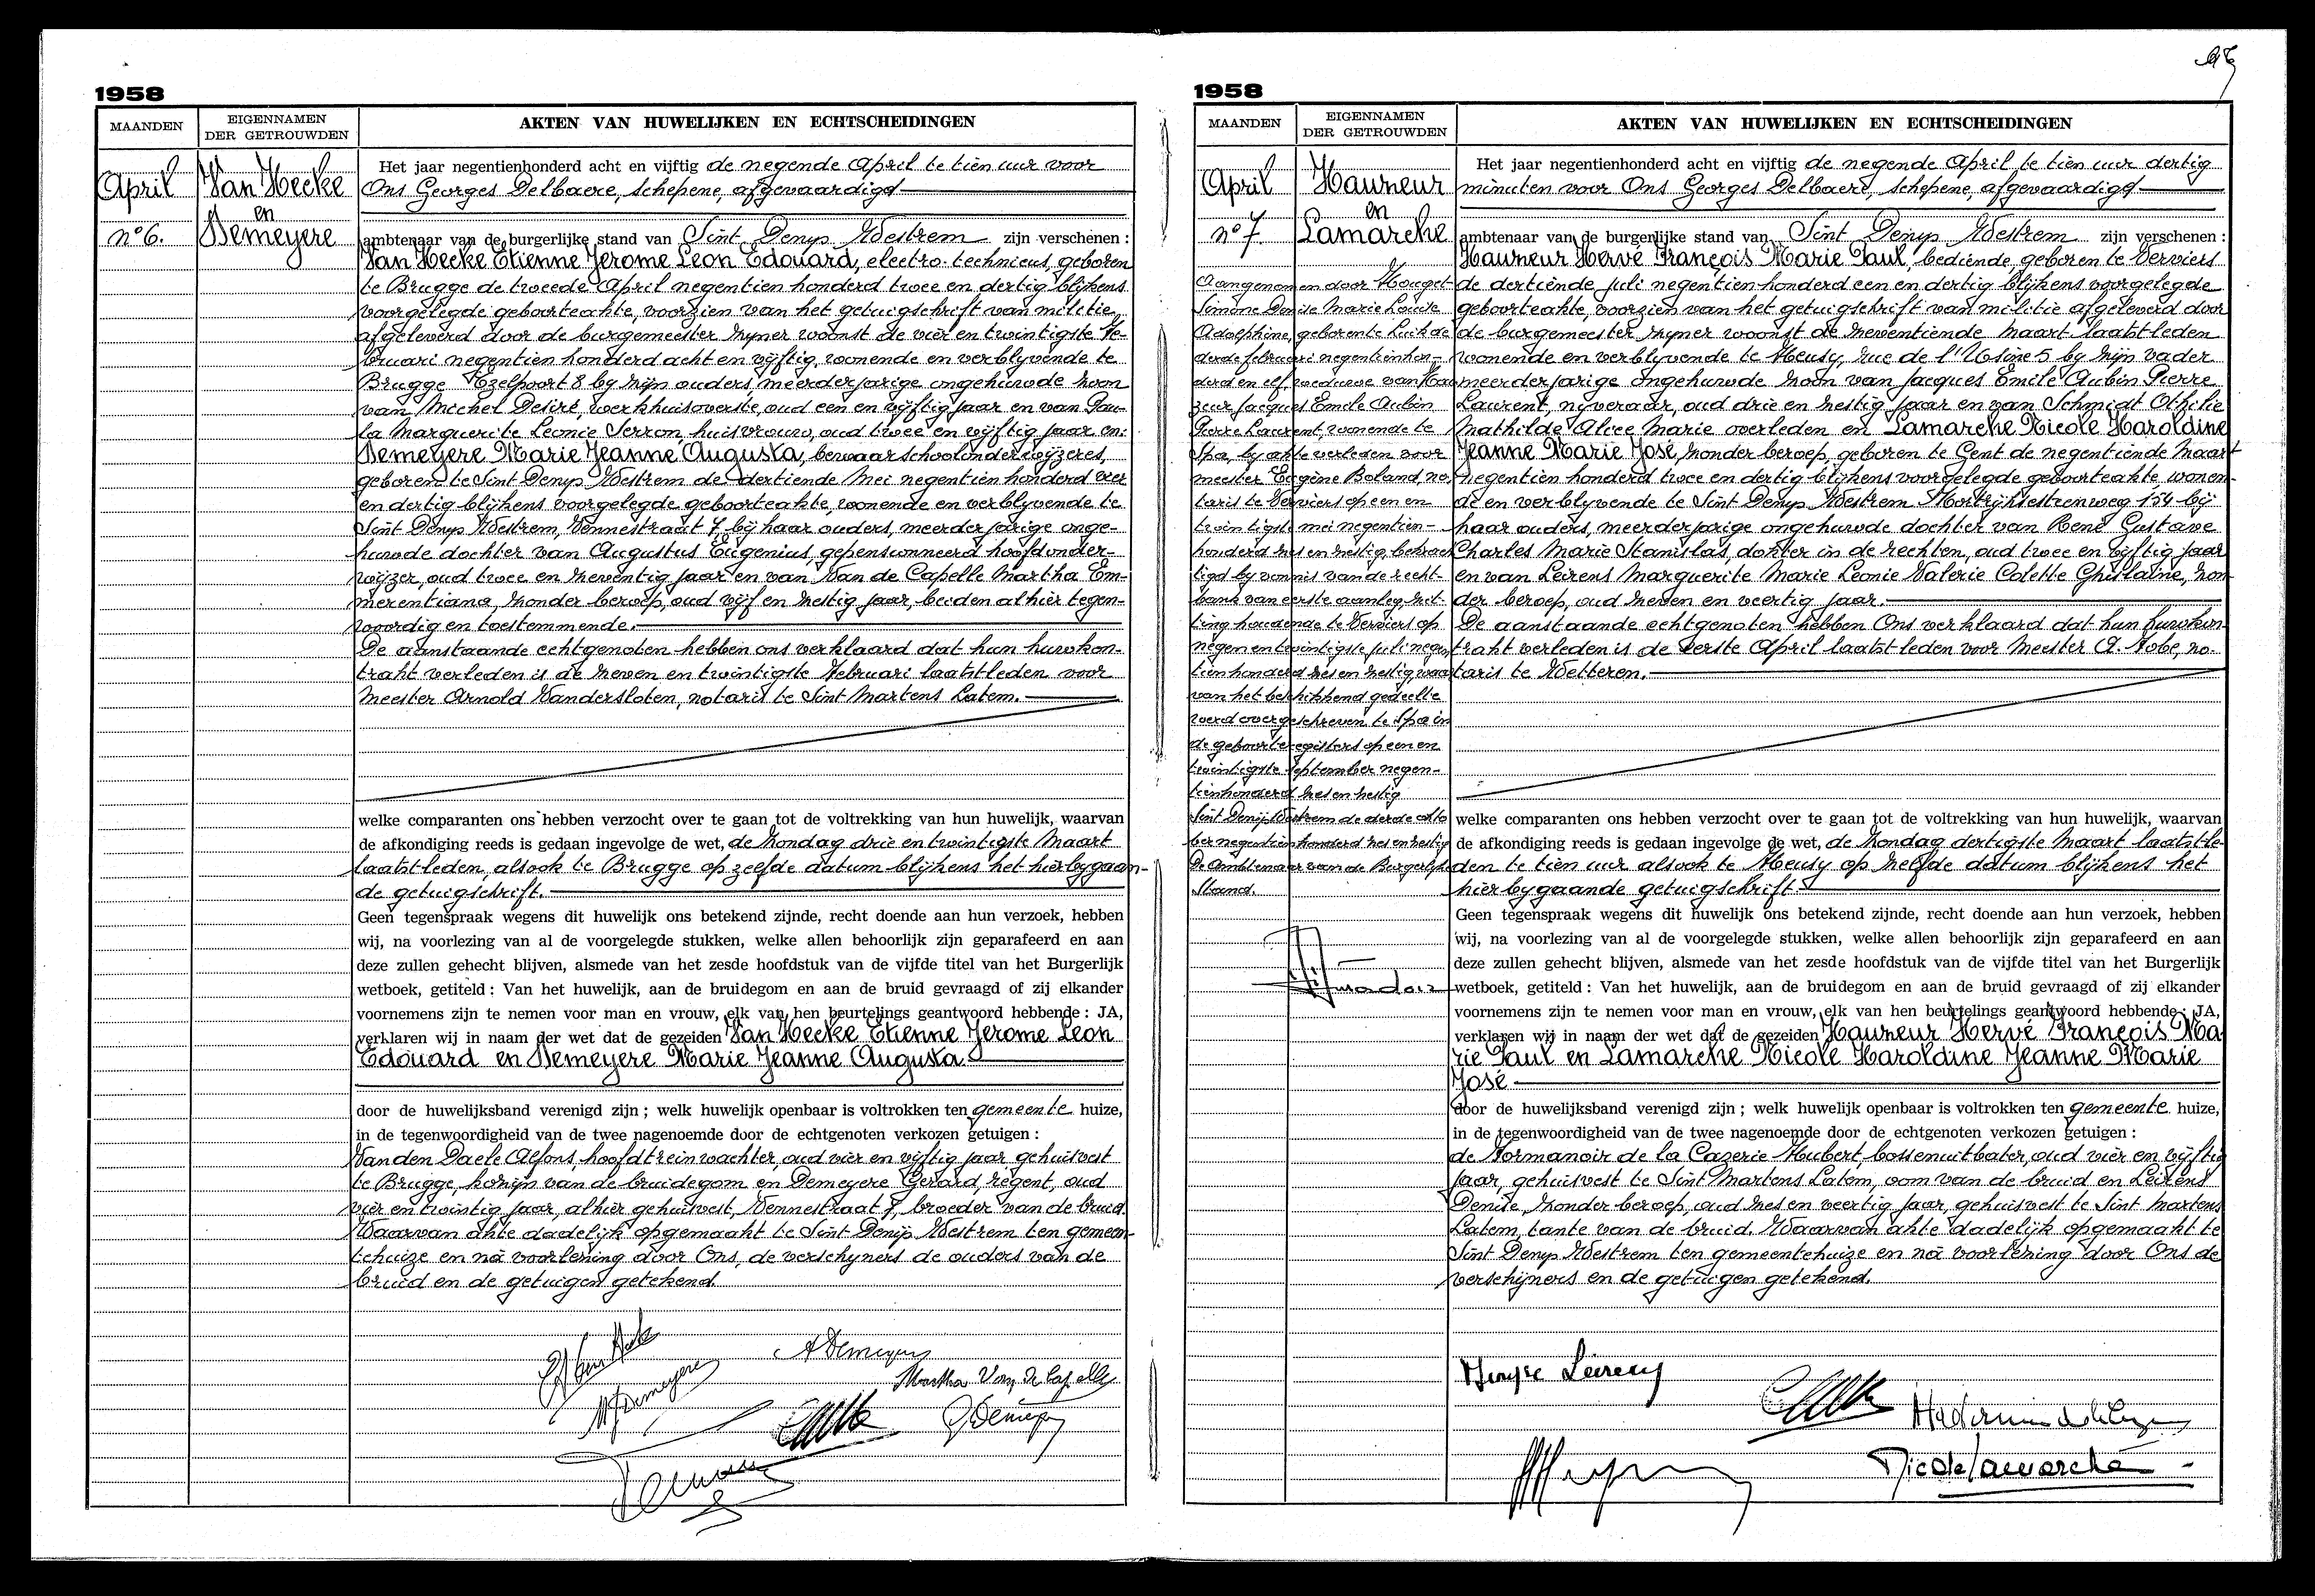 1958
MAANDEN
EIGENNAMEN
DER GETROUWDEN
AKTEN VAN HUWELIJKEN EN ECHTSCHEIDINGEN
April
n° 6.
Van Hecke
en
Demeyere
Het jaar negentienhonderd acht en vijftig de negende April te tien uur voor
Ons Georges Delbaere, schepene, afgevaardigd
ambtenaar van de burgerlijke stand van Sint Denys Westrem zijn verschenen :
Van Hecke Etienne Jerome Leon Edouard, electro-technicus, geboren
te Brugge de tweede April negentien honderd twee en dertig blijkens
voorgelegde geboorteakte, voorzien van het getuigschrift van militie,
afgeleverd door de burgemeester zyner woonst de vier en twintigste Fe-
bruari negentien honderd acht en vyftig, wonende en verblyvende te
Brugge Ezelpoort 8 by zijn ouders, meerderjarige ongehuwde zoon
van Michel Desiré, werkhuisoverste, oud een en vyftig jaar en van Pau-
la Marguerite Leonie Serron, huisvrouw, oud twee en vyftig jaar en:
Demeyere Marie Jeanne Augusta, bewaarschoolonderwyzeres,
geboren te Sint Denys Westrem de dertiende Mei negentien honderd vier
en dertig blijkens voorgelegde geboorteakte, wonende en verblyvende te
Sint Denys Westrem, Vennestraat 7 bij haar ouders, meerderjarige onge-
huwde dochter van Augustus Eugenius, gepensionneerd hoofdonder-
wijzer, oud twee en zeventig jaar en van Van de Capelle Martha Em-
merentiana, zonder beroep, oud vijf en zestig jaar, beiden alhier tegen-
woordig en toestemmende.
De aanstaande echtgenoten hebben ons verklaard dat hun huwkon-
trakt verleden is de zeven en twintigste Februari laatstleden voor
meester Arnold Vandersloten, notaris te Sint Martens Latem.
welke comparanten ons hebben verzocht over te gaan tot de voltrekking van hun huwelijk, waarvan
de afkondiging reeds is gedaan ingevolge de wet, de zondag drie en twintigste Maart
laatstleden, alsook te Brugge op zelfde datum blijkens het hierbygaan-
de getuigschrift.
Geen tegenspraak wegens dit huwelijk ons betekend zijnde, recht doende aan hun verzoek, hebben
wij, na voorlezing van al de voorgelegde stukken, welke allen behoorlijk zijn geparafeerd en aan
deze zullen gehecht blijven, alsmede van het zesde hoofdstuk van de vijfde titel van het Burgerlijk
wetboek, getiteld : Van het huwelijk, aan de bruidegom en aan de bruid gevraagd of zij elkander
voornemens zijn te nemen voor man en vrouw, elk van hen beurtelings geantwoord hebbende : JA,
verklaren wij in naam der wet dat de gezeiden Van Hecke Etienne Jerome Leon
Edouard en Demeyere Marie Jeanne Augusta
door de huwelijksband verenigd zijn ; welk huwelijk openbaar is voltrokken ten gemeente huize,
in de tegenwoordigheid van de twee nagenoemde door de echtgenoten verkozen getuigen :
Vanden Daele Alfons, hoofdtreinwachter, oud vier en vijftig jaar gehuisvest
te Brugge, kozijn van de bruidegom en Demeyere Gerard, regent, oud
vier en twintig jaar, alhier gehuisvest, Vennestraat 7, broeder van de bruid.
Waarvan akte dadelijk opgemaakt te Sint Denijs Westrem ten gemeen-
tehuize en nà voorlezing door Ons, de verschyners de ouders van de
bruid en de getuigen getekend.
A Demeyere
MJ Demeyere
Martha Van de Capelle
G Demeyere
1958
MAANDEN
EIGENNAMEN
DER GETROUWDEN
AKTEN VAN HUWELIJKEN EN ECHTSCHEIDINGEN
April
n° 7.
Hauzeur
en
Lamarche
Aangenomen door Houget
Simone Denise Marie Louise
Adolphine, geboren te Luik de
derde februari negentienhon-
derd en elf, weduwe van Hau
zeur Jacques Emile Aubin
Pierre Laurent, wonende te
Spa, by akte verleden voor
meester Eugène Boland no-
taris te Verviers op een en
twintigste mei negentien-
honderd zes en zestig, bekrach
tigd by vonnis van de recht-
bank van eerste aanleg zit-
ting houdende te Verviers op
negen en twintigste juli negen
tienhonderd zes en zestig, waar
van het beschikkend gedeelte
werd overgeschreven te Spa in
de geboorteregisters op een en
twintigste september negen-
tienhonderd zes en zestig
Sint Denijs Westrem de derde okto
ber negentienhonderd zes en zestig
De Ambtenaar van de Burgerlijke
stand.
Het jaar negentienhonderd acht en vijftig de negende April te tien uur dertig
minuten voor Ons Georges Delbaere, schepene, afgevaardigd
ambtenaar van de burgerlijke stand van Sint Denys Westrem zijn verschenen :
Hauzeur Hervé François Marie Paul, bediende, geboren te Verviers
de dertiende juli negentien honderd een en dertig blijkens voorgelegde
geboorteakte, voorzien van het getuigschrift van militie afgeleverd door
de burgemeester zyner woonst de zeventiende Maart laatstleden
wonende en verblyvende te Heusy, rue de l'Usine 5 by zijn vader
meerderjarige ongehuwde zoon van Jacques Emile Aubin Pierre
Laurent, nyveraar, oud drie en zestig jaar en van Schmidt Othilie
Mathilde Alice Marie overleden en Lamarche Nicole Haroldine
Jeanne Marie José, zonder beroep, geboren te Gent de negentiende Maart
negentien honderd twee en dertig blijkens voorgelegde geboorteakte wonen-
de en verblyvende te Sint Denys Westrem Kortrijksesteenweg 154 bij
haar ouders, meerderjarige ongehuwde dochter van René Gustave
Charles Marie Stanislas, dokter in de rechten, oud twee en vyftig jaar
en van Leirens Marguerite Marie Leonie Valerie Colette Ghislaine, zon-
der beroep, oud zeven en veertig jaar.
De aanstaande echtgenoten hebben Ons verklaard dat hun huwkon-
trakt verleden is de eerste April laatstleden voor Meester A. Nobe, no-
taris te Wetteren.
welke comparanten ons hebben verzocht over te gaan tot de voltrekking van hun huwelijk, waarvan
de afkondiging reeds is gedaan ingevolge de wet, de zondag dertigste Maart laatstle-
den te tien uur alsook te Heusy op zelfde datum blijkens het
hierbygaande getuigschrift.
Geen tegenspraak wegens dit huwelijk ons betekend zijnde, recht doende aan hun verzoek, hebben
wij, na voorlezing van al de voorgelegde stukken, welke allen behoorlijk zijn geparafeerd en aan
deze zullen gehecht blijven, alsmede van het zesde hoofdstuk van de vijfde titel van het Burgerlijk
wetboek, getiteld : Van het huwelijk, aan de bruidegom en aan de bruid gevraagd of zij elkander
voornemens zijn te nemen voor man en vrouw, elk van hen beurtelings geantwoord hebbende : JA,
verklaren wij in naam der wet dat de gezeiden Hauzeur Hervé François Ma
rie Paul en Lamarche Nicole Haroldine Jeanne Marie
José
door de huwelijksband verenigd zijn ; welk huwelijk openbaar is voltrokken ten gemeente huize,
in de tegenwoordigheid van de twee nagenoemde door de echtgenoten verkozen getuigen :
de Hormanoir de la Cazerie Hubert, bossenuitbater, oud vier en vijftig
jaar, gehuisvest te Sint Martens Latem, oom van de bruid en Leirens
Denise, zonder beroep, oud zes en veertig jaar, gehuisvest te Sint Martens
Latem, tante van de bruid. Waarvan akte dadelijk opgemaakt te
Sint Denys Westrem ten gemeentehuize en nà voorlezing door Ons de
verschijners en de getuigen getekend.
Nicole Lamarche